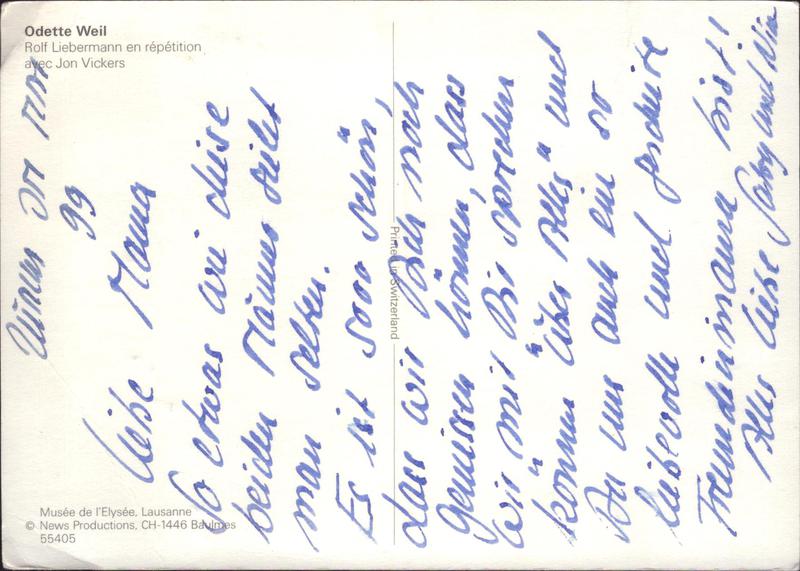 Odette Weil
Rolf Liebermann en répétition
avec Jon Vickers
99
Liebe Mama
So etwas wie diese
beiden Männer sieht
man selten.
Es ist sooo schön,
dass wir Dich noch
geniessen können, dass
wir mit Dir sprechen
können "über Alles" und
Du uns auch ein so
liebevolle und gescheite
Freundinmama bist!
Alles Liebe Gaby und
Printed in Switzerland
Musée de l'Elysée, Lausanne
© News Productions, CH-1446 Baulmes
55405